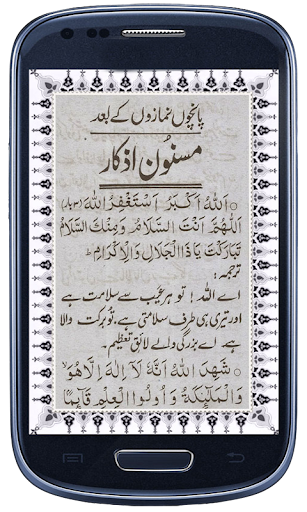 پانچوں نمازوں کے بعد
مسنُون اذکار
اَللّٰهُ اَكْبَرُ اَسْتَغْفِرُ اللّٰهَ (۳ بار)
اَللّٰهُمَّ اَنْتَ السَّلَامُ وَمِنْكَ السَّلَامُ
تَبَارَكْتَ يَا ذَا الْجَلَالِ وَالْاِكْرَامِ ط
ترجمہ:
اے اللہ! تو ہر عیب سے سلامت ہے
اور تیری ہی طرف سلامتی ہے، تُو برکت والا
ہے۔ اے بزرگی والے لائق تعظیم۔
شَهِدَ اللّٰهُ اَنَّهٗ لَآ اِلٰهَ اِلَّا هُوَ
وَالْمَلٰٓئِكَةُ وَاُولُوا الْعِلْمِ قَآئِمًا